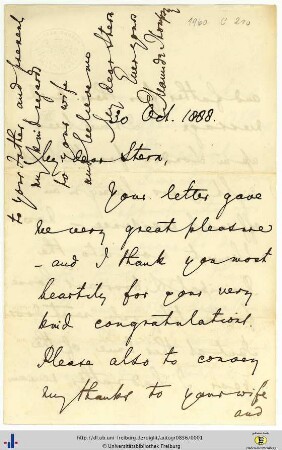 1960 C 210
30 Oct. 1888.
My dear Stern,
Your letter gave
me very great pleasure
– and I thank you most
heartily for your very
kind congratulations.
Please also to convey
my thanks to your wife
and
to your father and present
my kind regards
to your wife
and believe me
my dear Stern
Ever yours
http://dl.ub.uni-freiburg.de/diglit/autogr0856/0001
© Universitätsbibliothek Freiburg